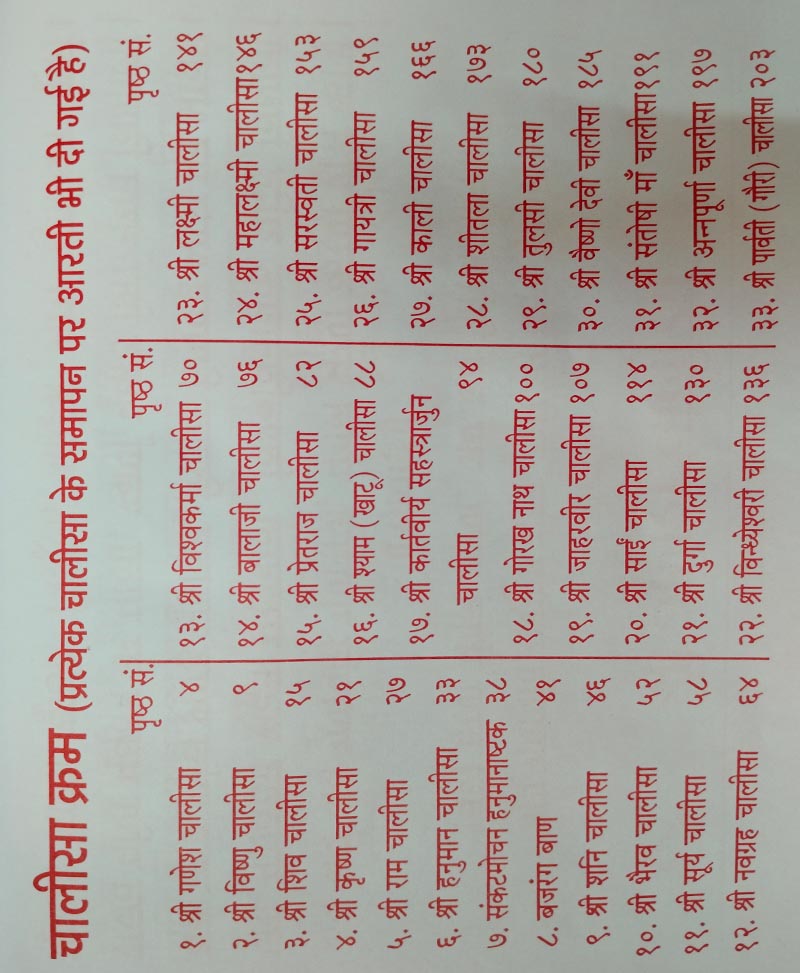 चालीसा क्रम (प्रत्येक चालीसा के समापन पर आरती भी दी गई है)
पृष्ठ सं.
१. श्री गणेश चालीसा ४
२. श्री विष्णु चालीसा ९
३. श्री शिव चालीसा १५
४. श्री कृष्ण चालीसा २१
५. श्री राम चालीसा २७
६. श्री हनुमान चालीसा ३३
७. संकटमोचन हनुमानाष्टक ३८
८. बजरंग बाण ४१
९. श्री शनि चालीसा ४६
१०. श्री भैरव चालीसा ५२
११. श्री सूर्य चालीसा ५८
१२. श्री नवग्रह चालीसा ६४
पृष्ठ सं.
१३. श्री विश्वकर्मा चालीसा ७०
१४. श्री बालाजी चालीसा ७६
१५. श्री प्रेतराज चालीसा ८२
१६. श्री श्याम (खाटू) चालीसा ८८
१७. श्री कार्तवीर्य सहस्त्रार्जुन
चालीसा ९४
१८. श्री गोरख नाथ चालीसा १००
१९. श्री जाहरवीर चालीसा १०७
२०. श्री साईं चालीसा ११४
२१. श्री दुर्गा चालीसा १३०
२२. श्री विन्ध्येश्वरी चालीसा १३६
पृष्ठ सं.
२३. श्री लक्ष्मी चालीसा १४१
२४. श्री महालक्ष्मी चालीसा १४६
२५. श्री सरस्वती चालीसा १५३
२६. श्री गायत्री चालीसा १५९
२७. श्री काली चालीसा १६६
२८. श्री शीतला चालीसा १७३
२९. श्री तुलसी चालीसा १८०
३०. श्री वैष्णो देवी चालीसा १८५
३१. श्री संतोषी माँ चालीसा १९१
३२. श्री अन्नपूर्णा चालीसा १९७
३३. श्री पार्वती (गौरी) चलीसा २०३